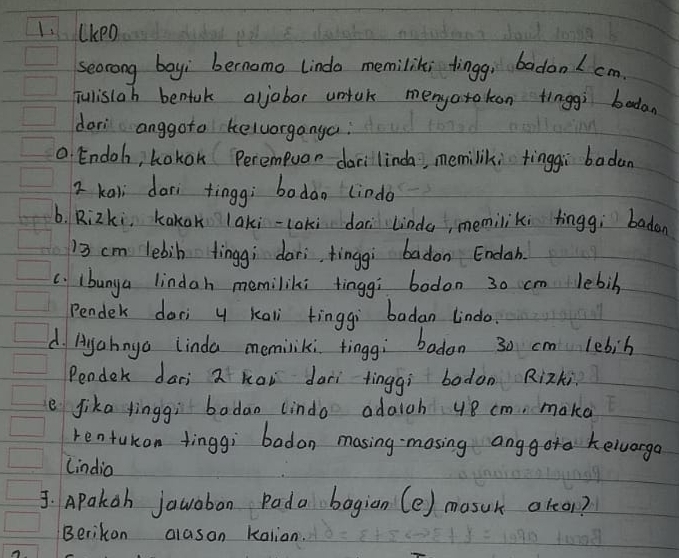 1. LKPD
seorang bayi bernama Linda memiliki tinggi badan L cm.
Tulislah bentuk aljabar untuk menyatakan tinggi badan
dari anggota keluarganya:
a. Endah, kakak Perempuan dari linda, memiliki tinggi badan
2 kali dari tinggi badan Linda
b. Rizki, kakak laki-laki dari Linda, memiliki tinggi badan
13 cm lebih tinggi dari, tinggi badan Endah.
c. Ibunya lindah memiliki tinggi badan 30 cm lebih
Pendek dari 4 kali tinggi badan Linda.
d. Ayahnya Linda memiliki tinggi badan 30 cm lebih
Pendek dari 2 kali dari tinggi badan Rizki.
e. jika tinggi badan Linda adalah 48 cm, maka
tentukan tinggi badan masing-masing anggota keluarga
Lindia
f. APakah jawaban Pada bagian (e) masuk akal?
Berikan alasan kalian.
2.